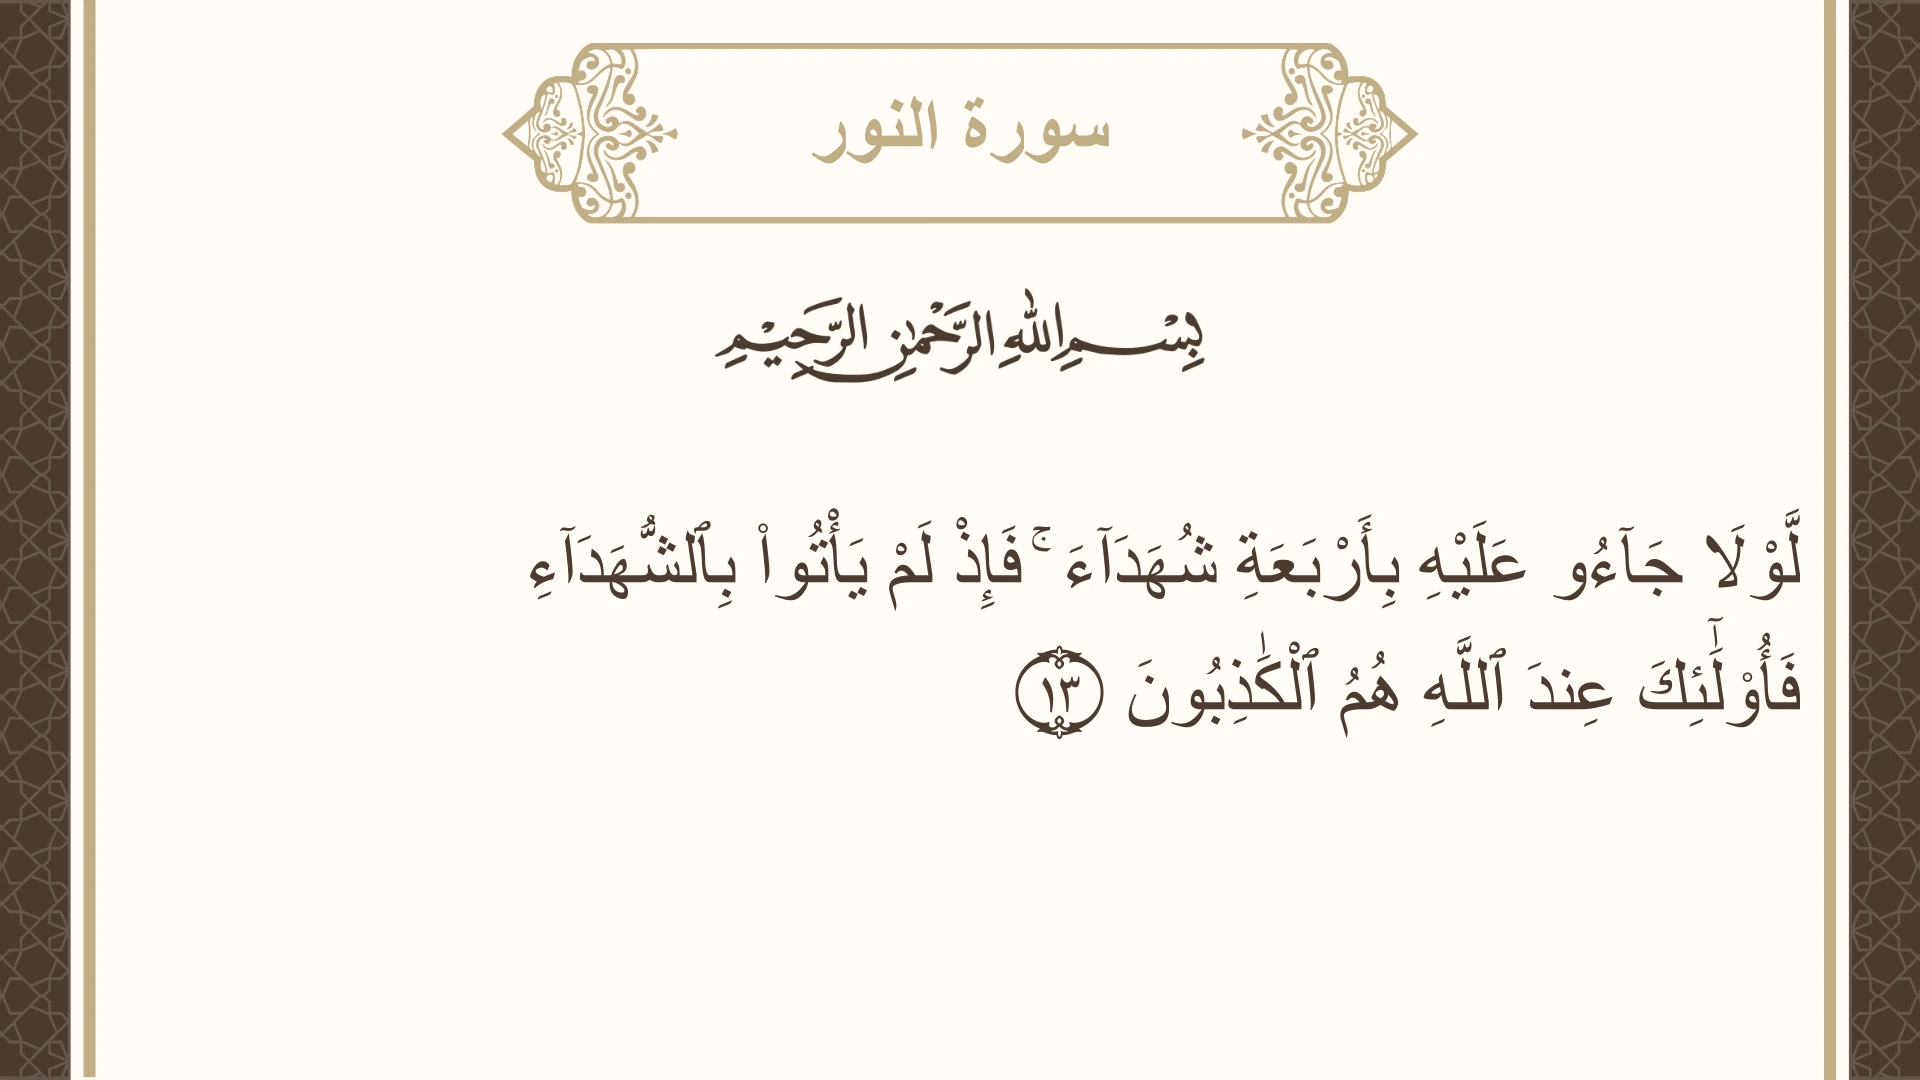 سورة النور
بِسْمِ اللهِ الرَّحْمٰنِ الرَّحِيْمِ
لَّوْلَا جَآءُو عَلَيْهِ بِأَرْبَعَةِ شُهَدَآءَ ۚ فَإِذْ لَمْ يَأْتُوا۟ بِٱلشُّهَدَآءِ
فَأُو۟لَٰٓئِكَ عِندَ ٱللَّهِ هُمُ ٱلْكَٰذِبُونَ ١٣